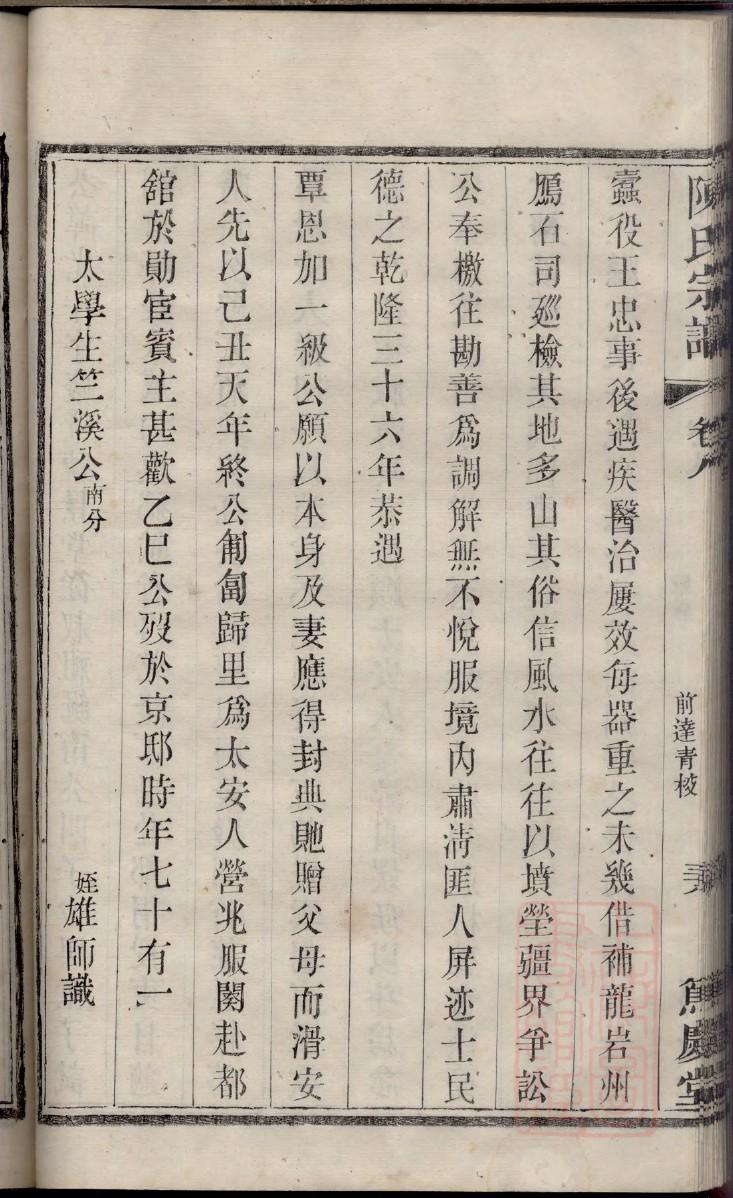 陳氏宗譜
卷八
前達青棱
蠧役王忠事後遇疾醫治屢效每器重之未幾借補龍岩州
鴈石司廵檢其地多山其俗信風水往往以墳塋疆界爭訟
公奉檄往勘善爲調解無不悅服境內肅清匪人屏迹士民
德之乾隆三十六年恭遇
覃恩加一級公願以本身及妻應得封典貤贈父母而滑安
人先以己丑天年終公匍匐歸里爲太安人營兆服闋赴都
舘於勛宦賓主甚歡乙巳公歿於京邸時年七十有一
姪雄師識
太學生竺溪公南分